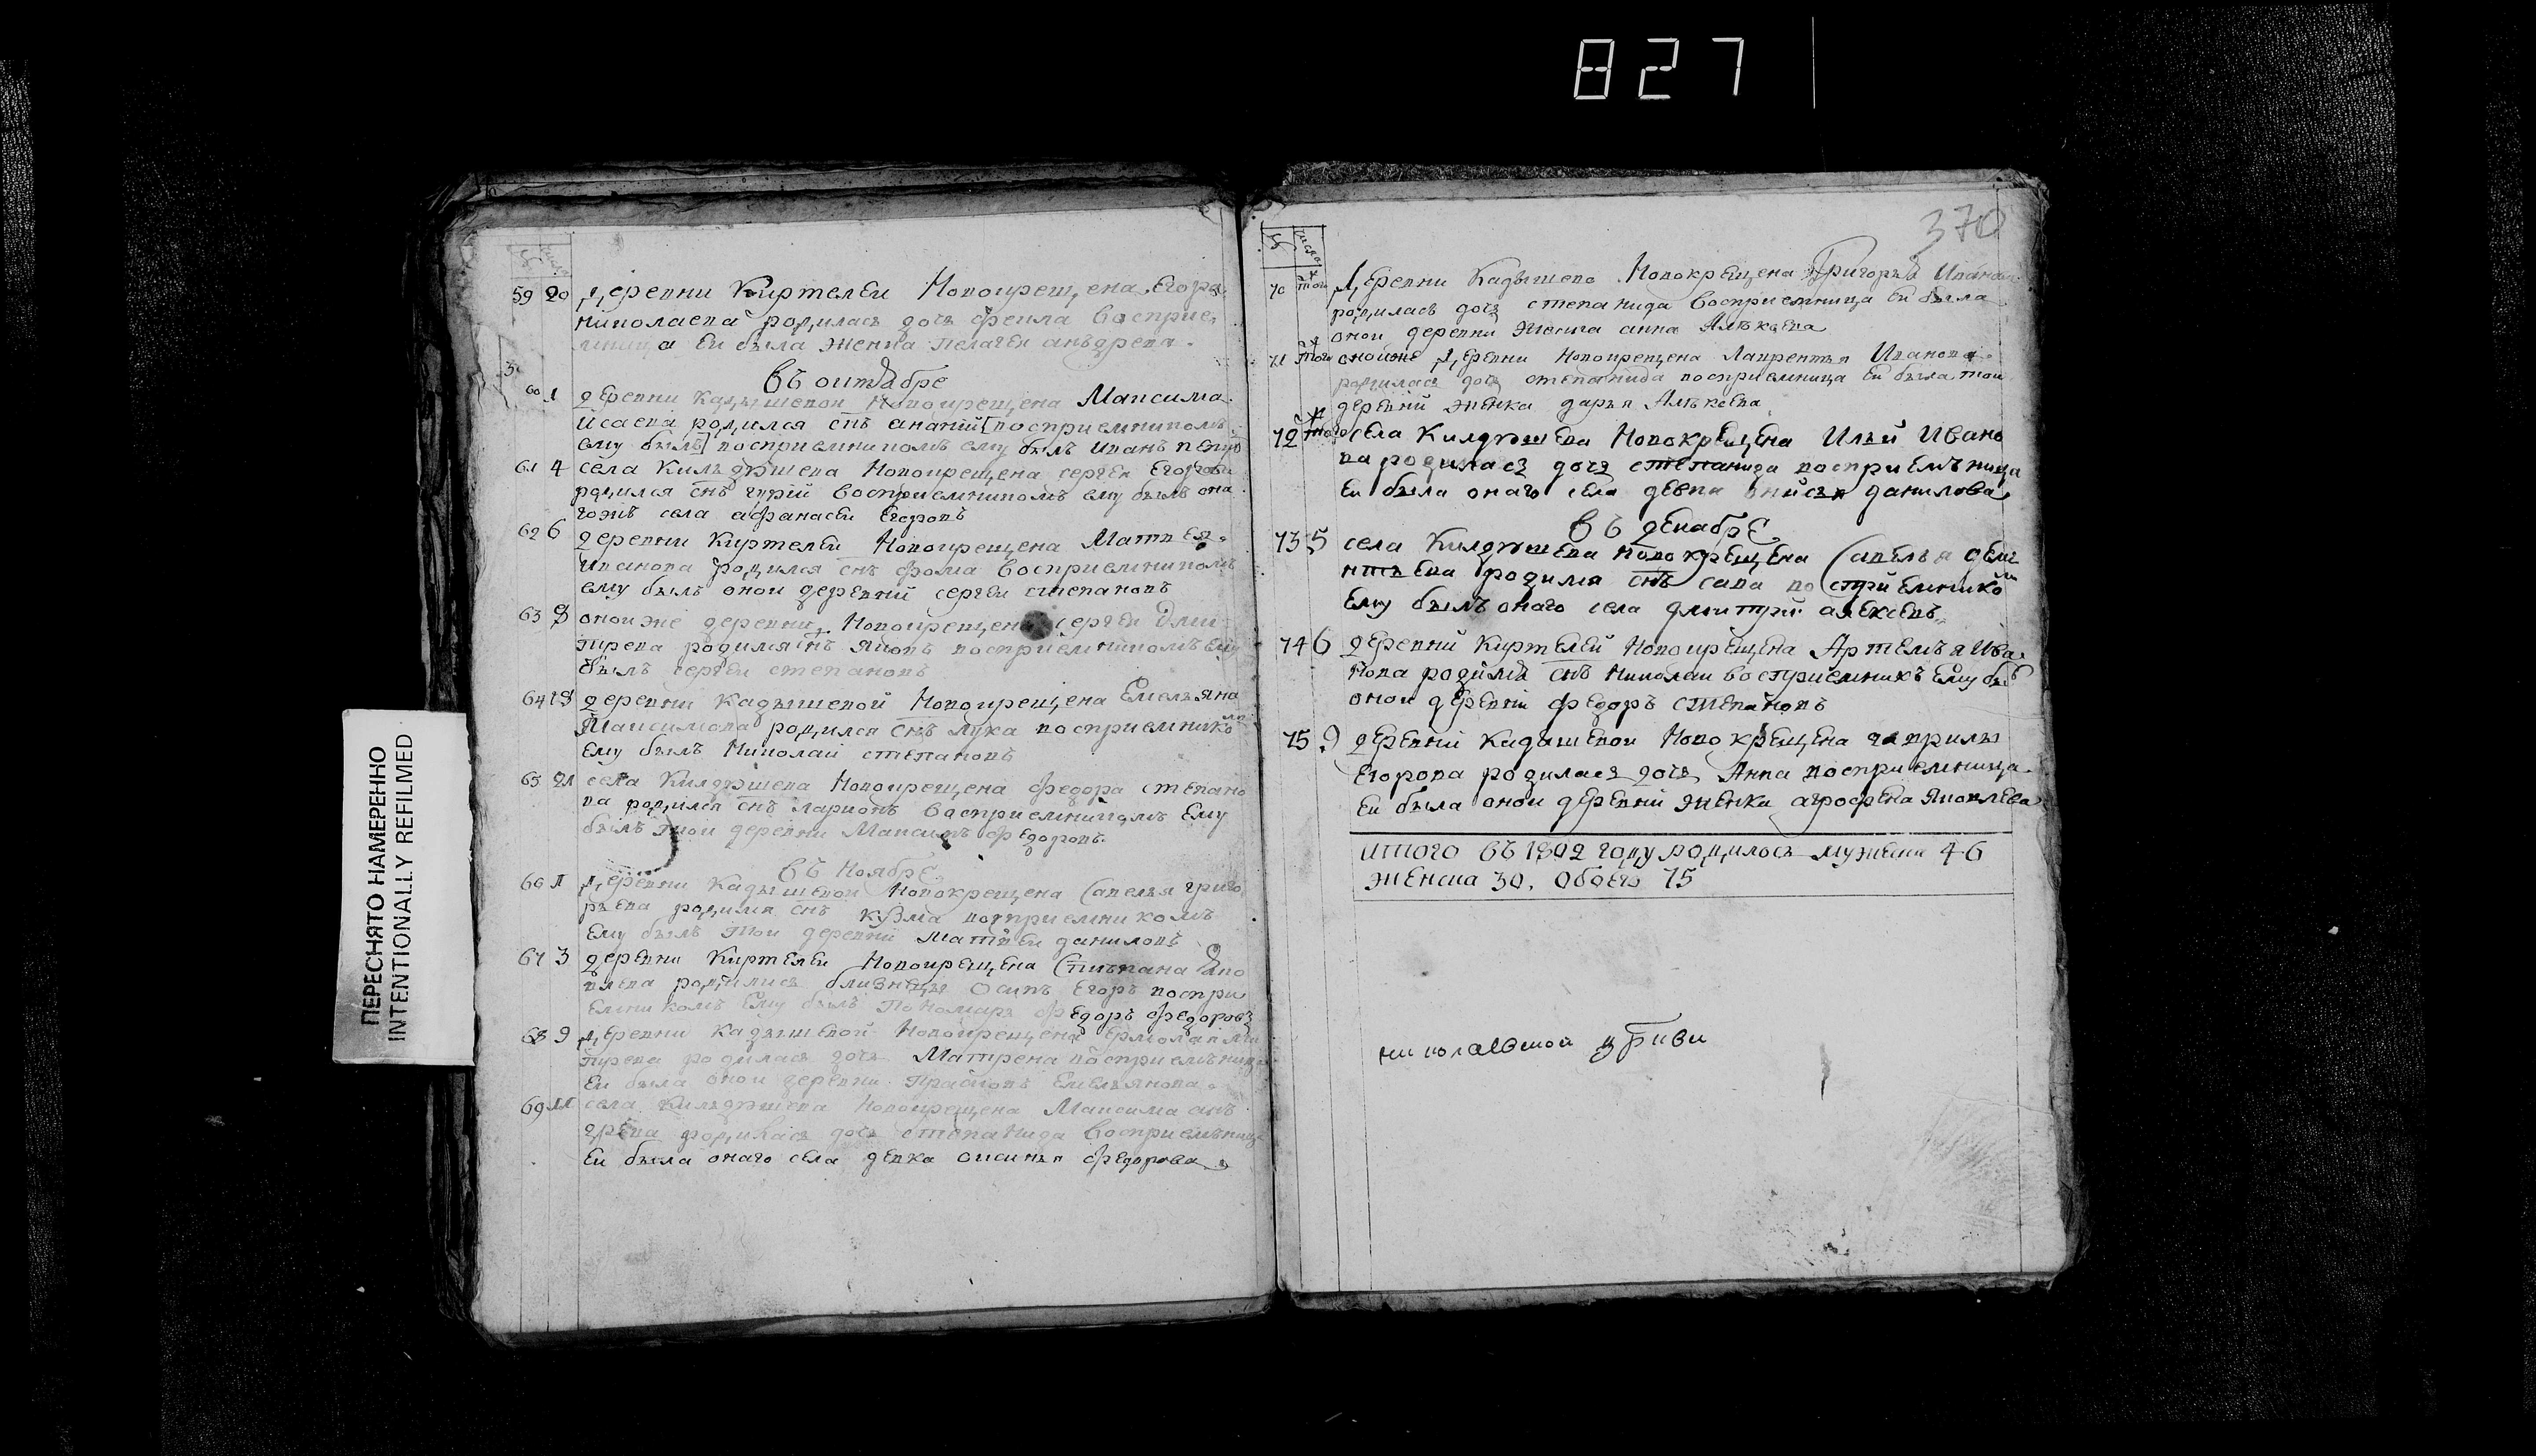 827
ПЕРЕСНЯТО НАМЕРЕННО
INTENTIONALLY REFILMED
№ числа
59 20 деревни Киртелеи Новокрещена Егора
николаева родилась дочь фекла восприе
мница еи была женка пелагеи анъдрева
въ октябре
60 1 деревни кадышевои новокрещена Максима
исаева родился снъ ананiи [восприемникомъ
ему былъ] восприемникомъ ему былъ иванъ
61 4 села Килдюшева Новокрещена сергея Егорова
родился снъ гурiй восприемникомъ ему былъ она
гожъ села афанасеи Егоровъ
62 6 деревни Киртелеи Новокрещена Матвея
иванова родился снъ фома восприемникомъ
ему былъ онои деревнй сергеи степановъ
63 8 онои же деревни Новокрещена сергея дми
трева родился снъ яковъ восприемникомъ ему
былъ сергеи степановъ
64 18 деревни кадышевой Новокрещена Емельяна
Максимова родился снъ лука восприемнико
ему былъ Николай степановъ
65 21 села Килдюшева Новокрещена федора степано
ва родился снъ ларионъ восприемникомъ Ему
былъ тои деревни Максимъ федоровъ
въ ноябре
66 1 деревни кадышевои новокрещена савелья григо
рьева родился снъ кузма восприемникомъ
ему былъ тои деревни матвеи даниловъ
67 3 деревни Киртелеи Новокрещена степана яко
влева родились близнецы осипъ Егоръ воспри
емникомъ Ему былъ пономарь федоръ федоровъ
68 9 деревни кадышевой новокрещена Ермолая дми
трева родилась дочь Матрена восприемъница
Еи была онои деревни Емельянова
69 11 села Килдюшева новокрещена Максима анъ
древа родилась дочь степанида восприемъница
Еи была онаго села девка оксинья федорова
370
№ числа
70 тогож Деревни Кадышево Новокрещена Григорья Иванова
родилась дочь степанида восприемница Еи была
онои деревни Женка анна Алъкаева
71 тогож онойже Деревни Новокрещена Лаврентья Иванова
родилась дочь степанида восприемница Еи была тои
деревнй женка дарья Алъкеева
72 тогож села Килдюшева Новокрещена Ильи Ивано
ва родилась дочь степанида восприемъница
Еи была онаго села девка данилова
въ декабре
73 5 села Килдюшева новокрещена савелья
родился снъ сава восприемником
Ему былъ онаго села дмитрiй алексевъ
74 6 деревнй Киртелей Новокрещена Артемъя Ива
нова родился снъ Николаи восприемникъ Ему бы
онои деревнй федоръ степановъ
75 9 деревнй кадышевои Новокрещена гаврилы
Егорова родилась дочь Анна восприемница
Еи была онои деревнй женка агрофена яковлева
итого въ 1802 году родилось мужеска 46
женска 30. обоего 75